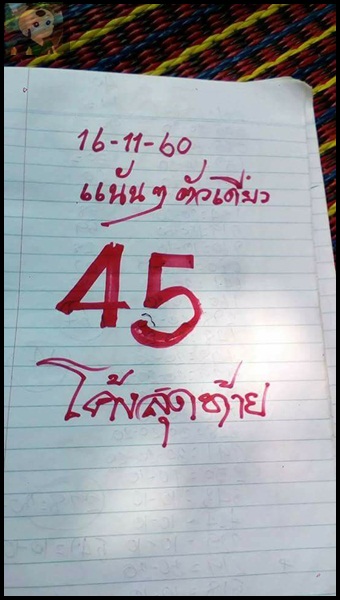 16-11-60
แน่นๆ ตัวเดียว
45
โค้งสุดท้าย